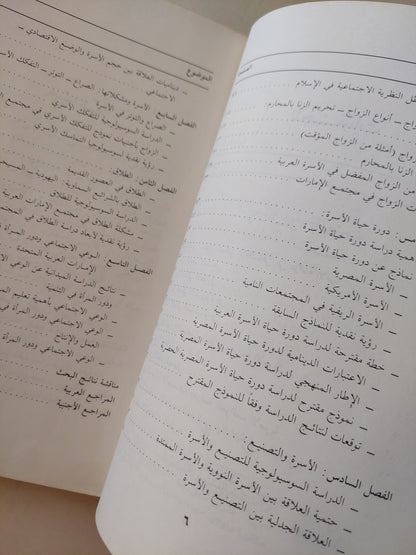 ل النظرية الاجتماعية في الإسلام
اج ـ أنواع الزواج ـ تحريم الزنا بالمحارم
الزواج (أمثلة من الزواج المؤقت)
الزنا بالمحارم
الزواج المفضل في الأسرة العربية
ت الزواج في مجتمع الإمارات
س: دورة حياة الأسرة:
همية دراسة دورة حياة الأسرة
نماذج عن دورة حياة الأسرة
ـ الأسرة المصرية
ـ الأسرة الأمريكية
ـ الأسرة الريفية في المجتمعات النامية
ـ رؤية نقدية للنماذج السابقة
ـ خطة مقترحة لدراسة دورة حياة الأسرة العربية
ـ الاعتبارات الدينامية لدورة حياة الأسرة المصرية
ـ الإطار المنهجي لدراسة دورة حياة الأسرة المصرية الحضرية
ـ نموذج مقترح لدراسة دورة حياة الأسرة
ـ توقعات لنتائج الدراسة وفقاً للنموذج المقترح
الفصل السادس: الأسرة والتصنيع:
ـ الدراسة السوسيولوجية للتصنيع والأسرة
ـ حتمية العلاقة بين الأسرة النووية والأسرة الممتدة
ـ العلاقة الجدلية بين التصنيع والأسرة
٦
الموضوع
ـ ديناميات العلاقة بين حجم الأسرة والوضع الاقتصادي ـ
الاجتماعي
الفصل السابع: الأسرة ومشكلاتها: الصراع ـ التوتر ـ التفكك
ـ الصراع والتوتر في الأسرة
ـ الدراسة السوسيولوجية للتفكك الأسري
ـ الزواج بأجنبيات نموذج للتفكك الأسري في مجتمع
ـ رؤية نقدية لسوسيولوجيا التماسك الأسري
الفصل الثامن: الطلاق:
ـ الطلاق في العصور القديمة
ـ الطلاق بالشرائع السماوية: اليهودية ـ المسيحي
ـ الدراسة السوسيولوجية للطلاق
ـ مشكلة الطلاق في مجتمع الإمارات العربية
ـ رؤية نقدية لأبعاد دراسة الطلاق في المجتم
الفصل التاسع: الوعي الاجتماعي ودور المرأة
الإمارات العربية المتحدة
ـ نتائج الدراسة الميدانية عن الوعي الا
ودور المرأة في التنمية
ـ الوعي الاجتماعي بأهمية تعليم الم
ـ الوعي الاجتماعي ودور المرأة في
العمل والإنتاج
ـ الوعي الاجتماعي ودور المرأة
مناقشة نتائج البحث
المراجع العربية
المراجع الأجنبية